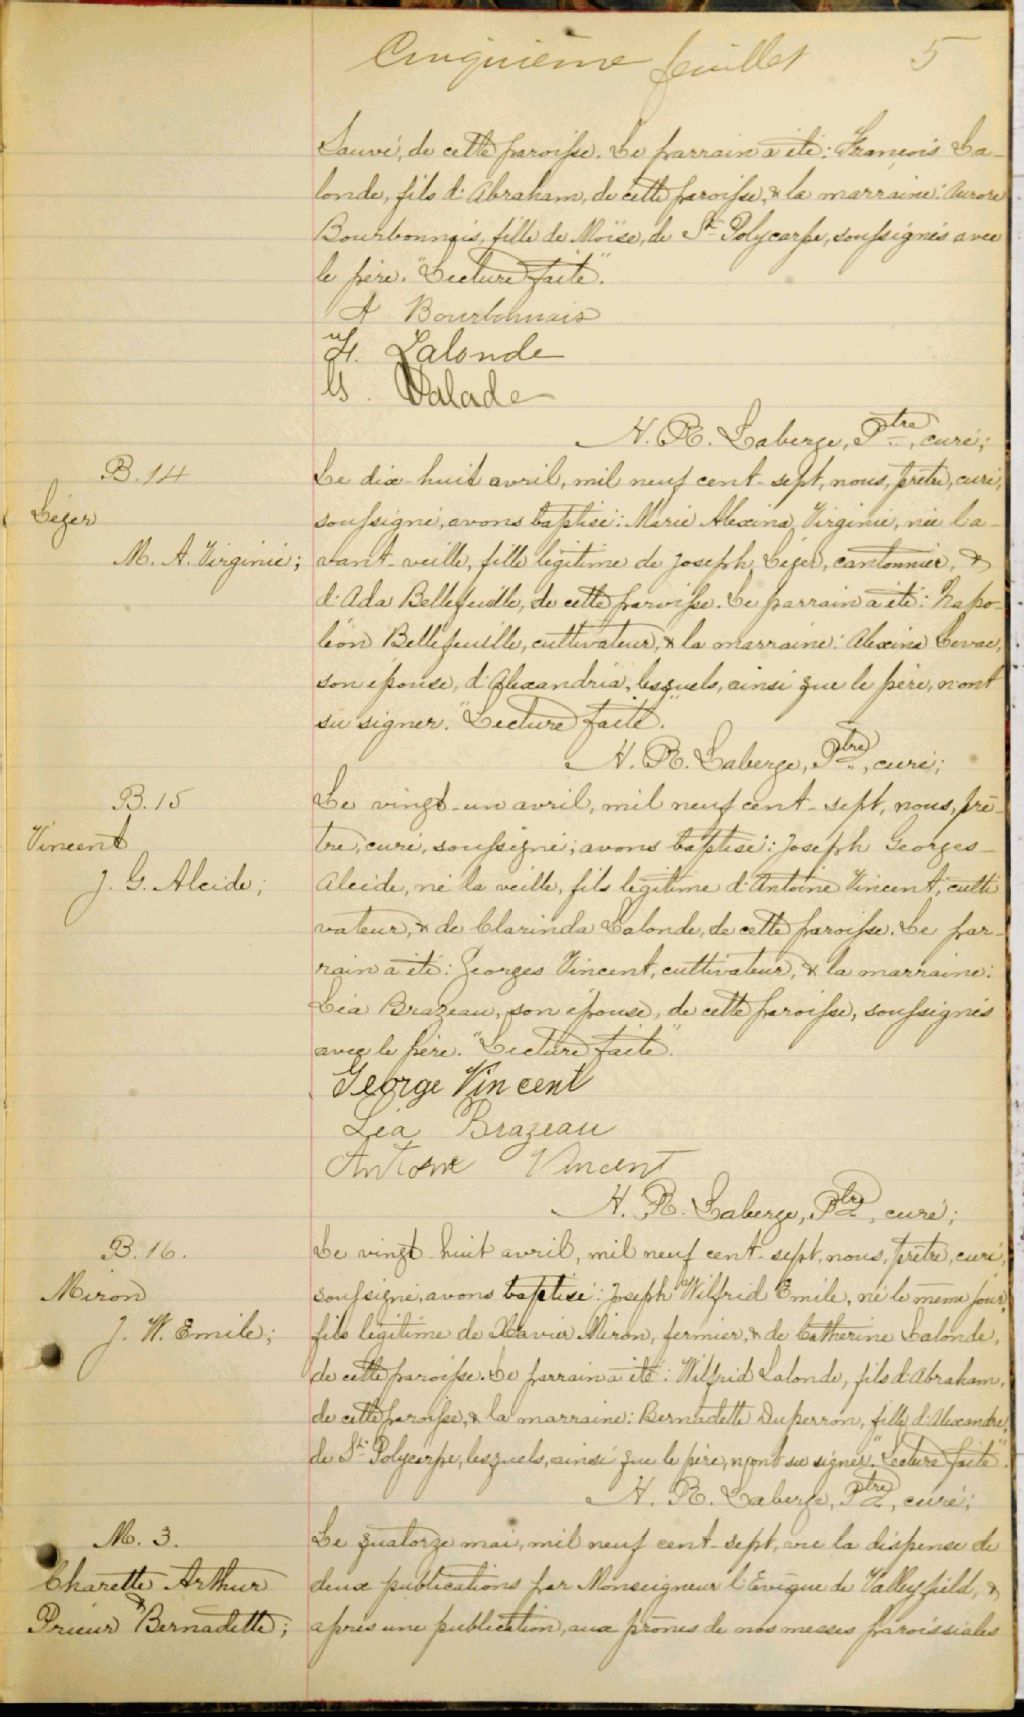 Cinquième feuillet 5
Sauvé, de cette paroisse. Le parrain a été: François La-
londe, fils d'Abraham, de cette paroisse, & la marraine: Aurore
Bourbonnais, fille de Moïse, de St Polycarpe, soussignés avec
le père. "Lecture faite".
A Bourbonnais
F. Lalonde
G. Valade
H. R. Laberge, Ptre, curé;
B. 14
Léger
M. A. Virginie;
Le dix-huit avril, mil neuf cent-sept, nous, prêtre, curé,
soussigné, avons baptisé: Marie Alexina Virginie, née l'a-
vant-veille, fille légitime de Joseph Léger, cantonnier, &
d'Ada Bellefeuille, de cette paroisse. Le parrain a été: Napo-
léon Bellefeuille, cultivateur, & la marraine: Alexina Levac,
son épouse, d'Alexandria, lesquels, ainsi que le père, n'ont
su signer. "Lecture faite".
H. R. Laberge, Ptre, curé;
B. 15
Vincent
J. G. Alcide;
Le vingt-un avril, mil neuf cent-sept, nous, prê-
tre, curé, soussigné, avons baptisé: Joseph Georges-
Alcide, né la veille, fils légitime d'Antoine Vincent, culti
vateur, & de Clarinda Lalonde, de cette paroisse. Le par-
rain a été: Georges Vincent, cultivateur, & la marraine:
Léa Brazeau, son épouse, de cette paroisse, soussignés
avec le père. "Lecture faite".
George Vincent
Léa Brazeau
Antoine Vincent
H. R. Laberge, Ptre, curé;
B. 16.
Miron
J. W. Emile;
Le vingt-huit avril, mil neuf cent-sept, nous, prêtre, curé,
soussigné, avons baptisé: Joseph Wilfrid Emile, né le même jour,
fils légitime de Xavier Miron, fermier, & de Catherine Lalonde,
de cette paroisse. Le parrain a été: Wilfrid Lalonde, fils d'Abraham,
de cette paroisse, & la marraine: Bernadette Duperron, fille d'Alexandre,
de St Polycarpe, lesquels, ainsi que le père, n'ont su signer. "Lecture faite".
H. R. Laberge, Ptre, curé;
M. 3.
Charette Arthur
&
Prieur Bernadette;
Le quatorze mai, mil neuf cent-sept, vu la dispense de
deux publications par Monseigneur l'Evêque de Valleyfield, &
après une publication, aux prônes de nos messes paroissiales